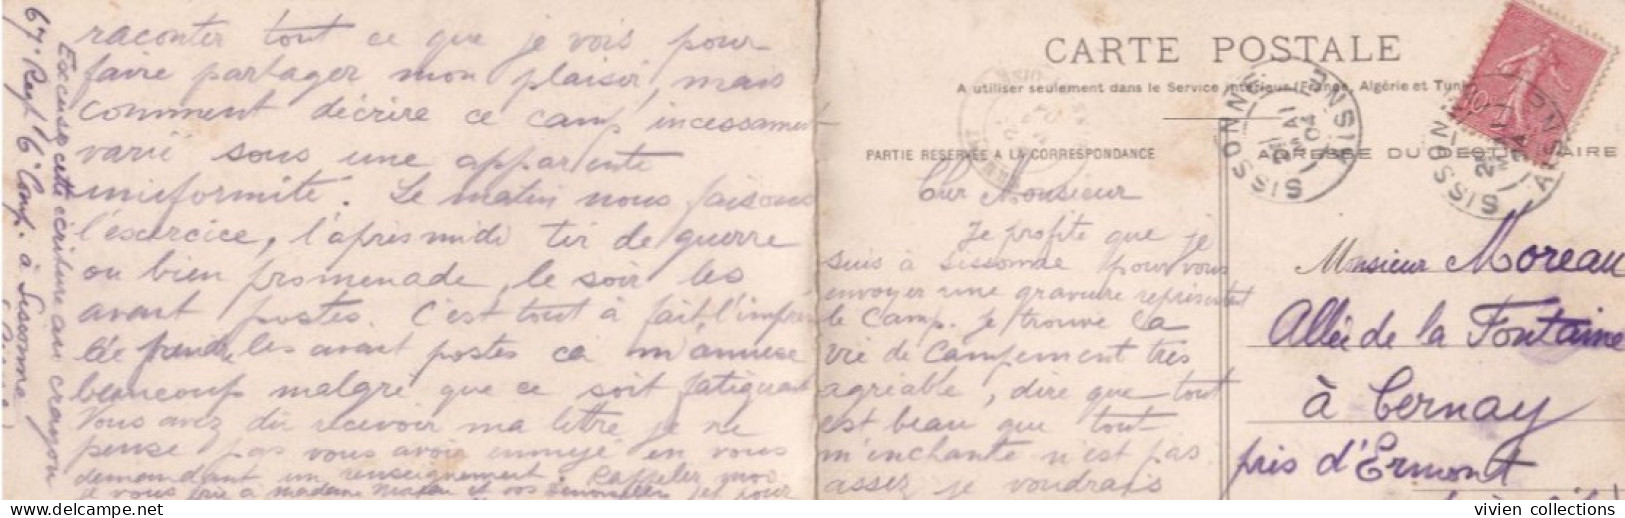 CARTE POSTALE
A utiliser seulement dans le Service intérieur (France, Algérie et Tunisie
PARTIE RÉSERVÉE A LA CORRESPONDANCE
ADRESSE DU DESTINATAIRE
SISSONNE
AISNE
21
MAI
04
Cher Monsieur
Je profite que je
suis à Sissonne pour vous
envoyer une gravure représentant
le camp. Je trouve la
vie de campement très
agréable, dire que tout
est beau que tout
m'enchante n'est pas
assez je voudrais
raconter tout ce que je vois pour
faire partager mon plaisir, mais
comment décrire ce camp incessament
varié sous une apparente
uniformité. Le matin nous faisons
l'exercice, l'après midi tir de guerre
ou bien promenade, le soir les
avant postes. C'est tout à fait l'impré
les avant postes ca m'amuse
beaucoup malgré que ce soit fatiguant
Vous avez dû recevoir ma lettre je ne
pense pas vous avoir ennuyé en vous
demandant un renseignement. Rappeler moi
je vous prie à madame Moreau et vos demoiselles et pour
Excuser cette écriture au crayon
67e Regt 6e Comp. à Sissonne
Monsieur Moreau
Allée de la Fontaine
à Cernay
près d'Ermont
vivien collections